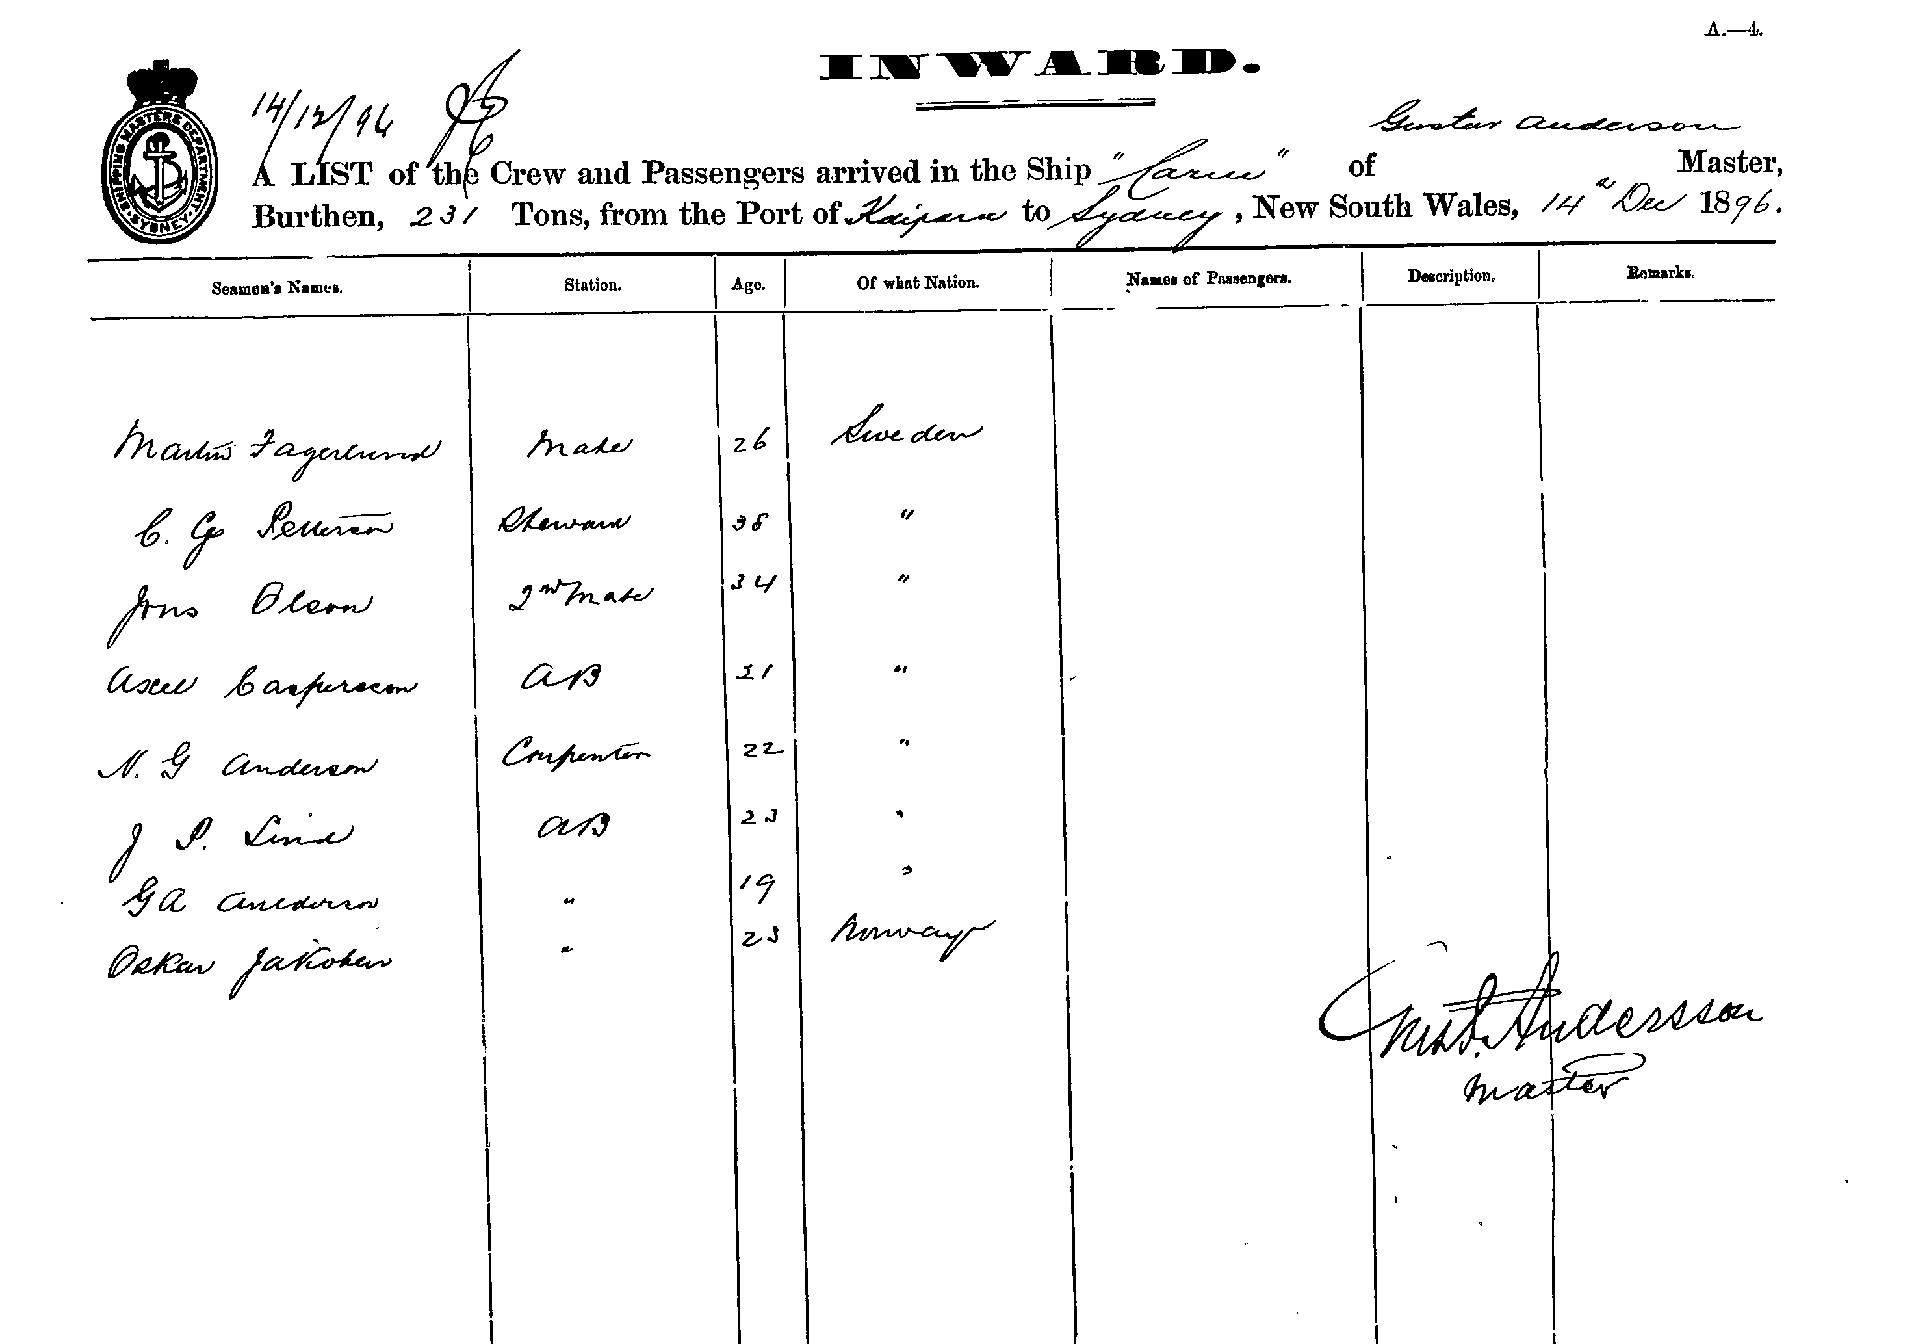 A.—4.
INWARD.
SHIPPING MASTERS DEPARTMENT. SYDNEY.
14/12/96
Gustav Anderson
A LIST of the Crew and Passengers arrived in the Ship "Carin" of Master,
Burthen, 231 Tons, from the Port of Kaipara to Sydney, New South Wales, 14" Dec 1896.
Seamen's Names. Station. Age. Of what Nation. Names of Passengers. Description. Remarks.
Martin Fagerlund Mate 26 Sweden
C. G Petterson Steward 38 "
Jons Olson 2nd Mate 34 "
Axel Casperson AB 21 "
N. G Anderson Carpenter 22 "
J P. Lind AB 23 "
G A Anderson " 19 "
Oskar Jakobsen " 23 Norway
Andersson
Master